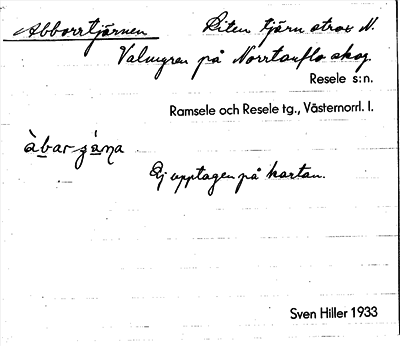 Abborrtjärnen Liten tjärn strax N.
Valmyran på Norrtanflo skog.
Resele s:n.
Ramsele och Resele tg., Västernorrl. l.
àbar-
Ej upptagen på kartan.
Sven Hiller 1933